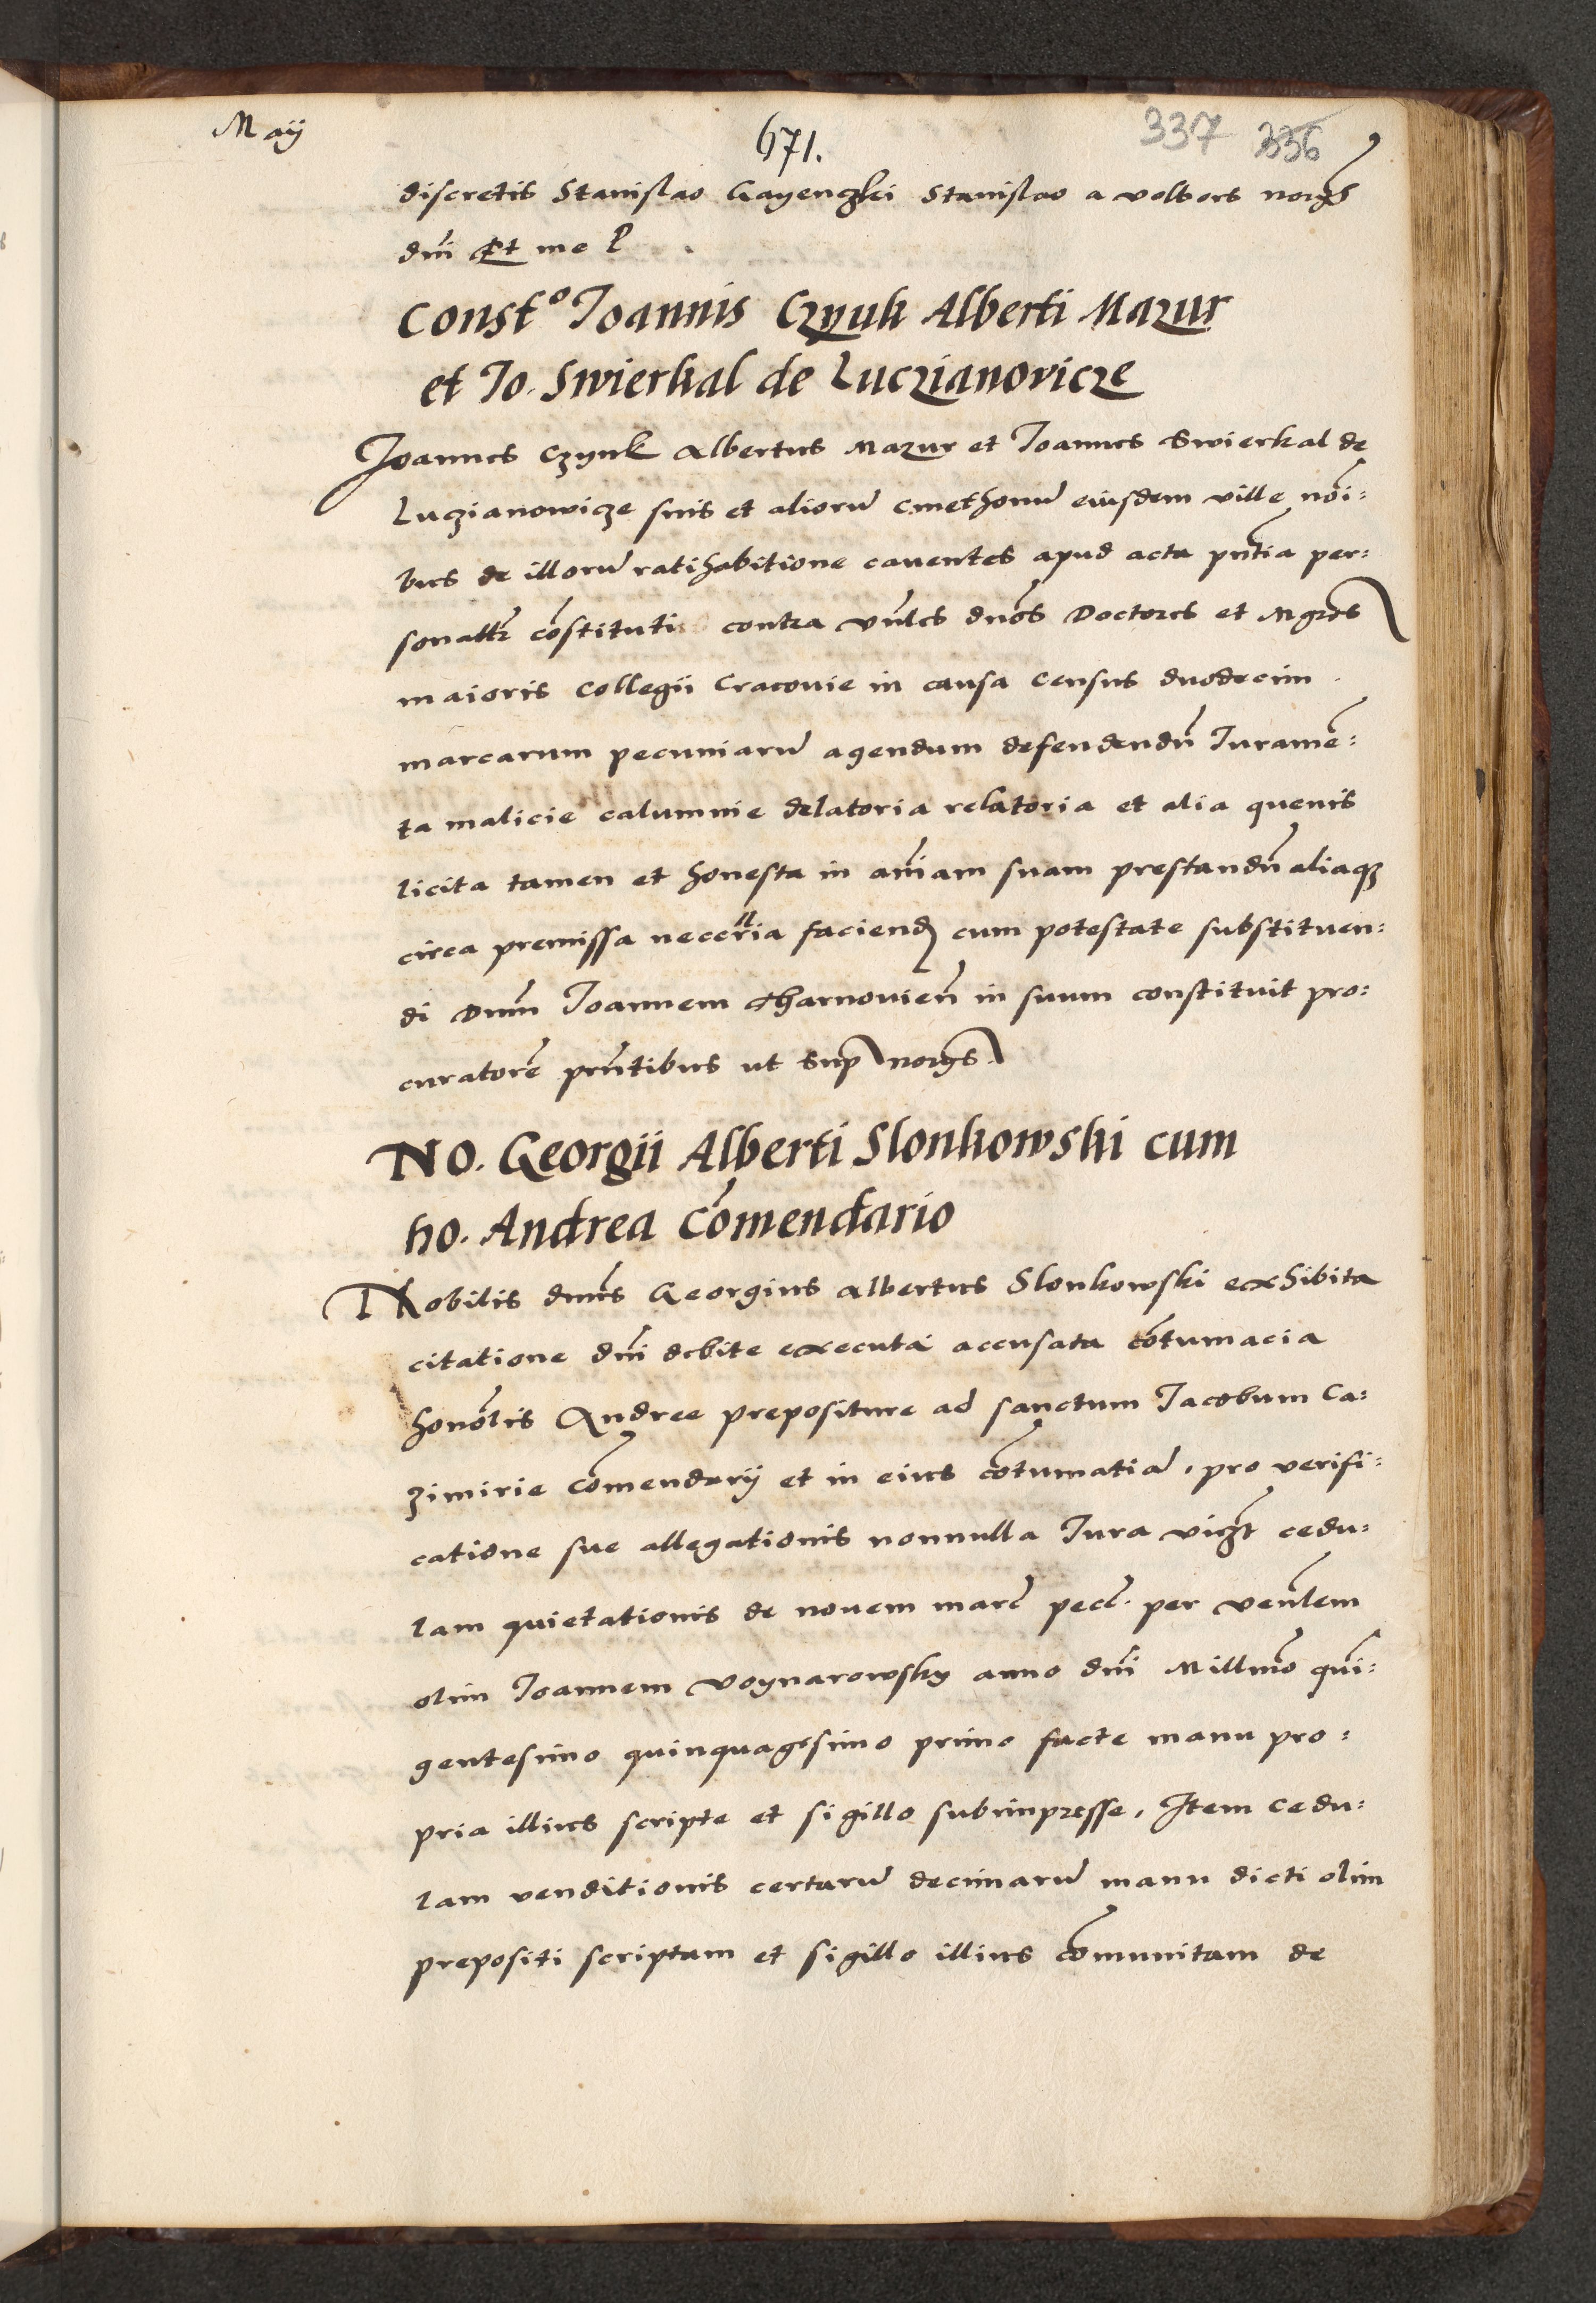 Maij
671.
337 336
discretis Stanislao Gayenczki Stanislao a Wolbors norijs
dni Et me P
Const° Joannis Czyuk Alberti Mazur
et Jo. Swierkal de Luczianovicze
Joannes Czyuk Albertus Mazur et Joannes Swierkal de
Luczianowicze suis et aliorū cmethonū eiusdem ville noi:
bus de illorū ratihabitione caventes apud acta pntia per:
sonaltr cōstituti contra vnles dnos Doctores et Mgros
maioris Collegii Cracovie in causa census duodecim
marcarum pecuniarū agendum defendendū Juramē:
ta malicie calumnie delatoria relatoria et alia quevis
licita tamen et honesta in aniam suam prestandū aliaqz
circa premissa necc̄ria faciend cum potestate substituen:
di Dnum Joannem Tharnovien̄ in suum constituit pro:
curatorē pn̄tibus ut sup norijs
No. Georgii Alberti Slonkowski cum
ho. Andrea Cōmendario
Nobilis dnus Georgius Albertus Slonkowski exhibita
citatione dni debite executa accusata cōtumacia
honolis Andree prepositure ad sanctum Jacobum Ca:
zimirie Cōmendarij et in eius cōtumatiā, pro verifi:
catione sue allegationis nonnulla Jura vizt cedu:
lam quietationis de novem marc pecc. per venlem
olim Joannem Woynarowsky anno dni Millmo quī:
gentesimo quinquagesimo primo facte manu pro:
pria illius scripte et sigillo subimpresse, Item cedu:
lam venditionis certarū decimarū manu dicti olim
prepositi scriptam et sigillo illius cōmunitam de